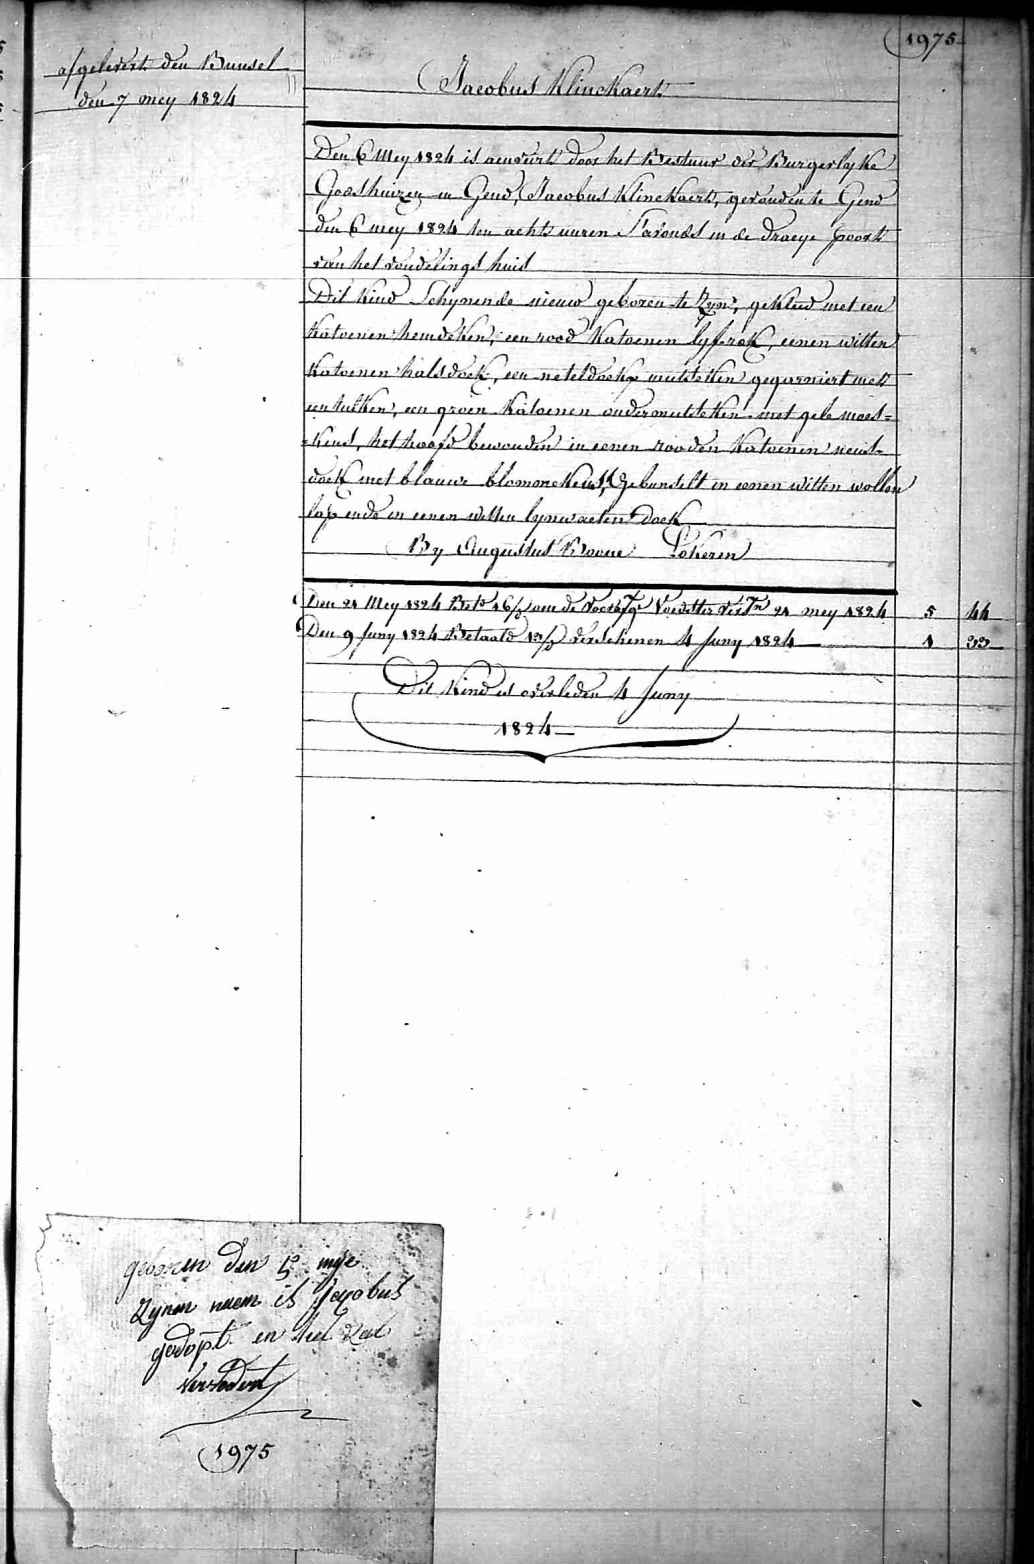 1975
afgelevert den Bunsel
den 7 mey 1824
Jacobus Klinckaert
Den 6 Mey 1824 is aenveirt door het Bestuur der Burgerlyke
Godshuizen in Gend, Jacobus Klinckaert, gevonden te Gend
den 6 mey 1824 ten acht uuren S'avonds in de draeye poort
van het vondelings huis
Dit kind Schynende nieuw geboren te zyn, gekleed met een
katoenen hemdeken, een rood katoenen lyfrok, eenen witten
katoenen halsdoek, een neteldoekx mutsken gegarniert met
een tulken, een groen katoenen ondermutsteken met gele moes=
=kens, het hoofd bewonden in eenen rooden katoenen neus=
doek met blauwe blomonckens, Gebunselt in eenen witten wollen
lap ende in eenen witten lynwaeten Doek
By Augustus Bovue Lokeren
Den 21 Mey 1824 Bet 16/ aen de Voedster 21 mey 1824 5 44
Den 9 Juny 1824 Betaald verschenen 4 Juny 1824 1 33
Dit Kind is overleden 4 Juny
1824
geboren den 5 mye
zynen naem is Jacobus
gedopt en het zal
1975